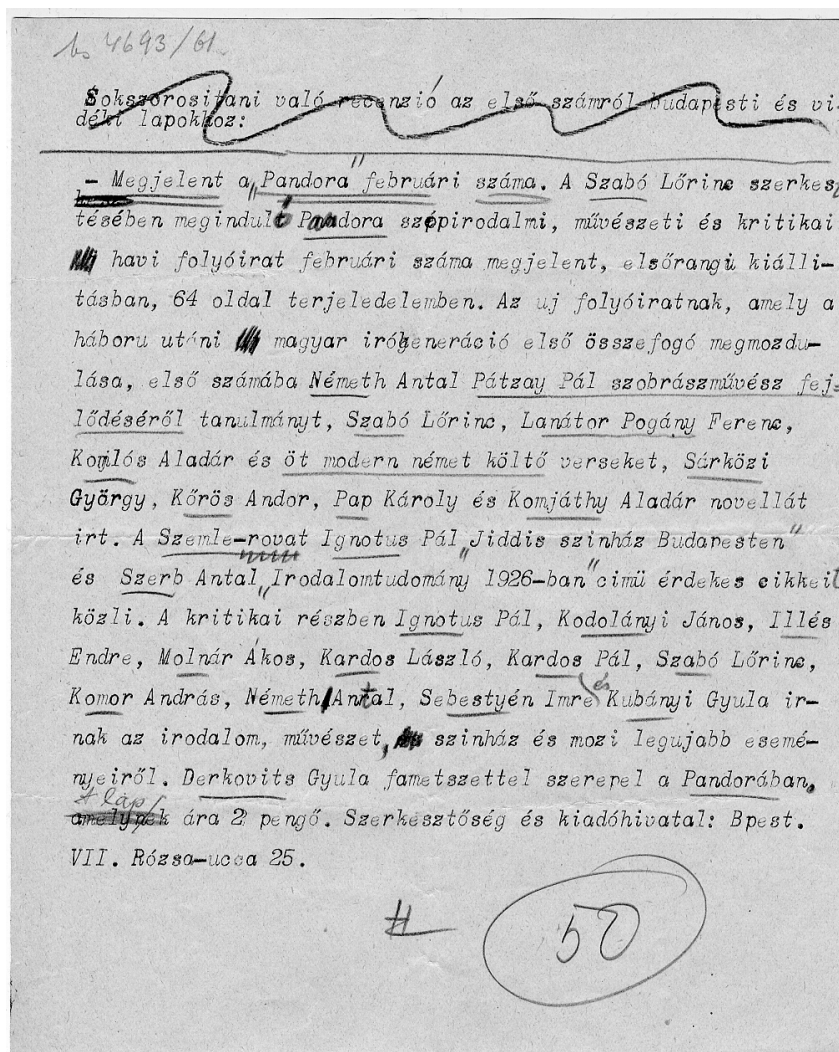 4693/61
Sokszorositani való recenzió az első számról budapesti és vi-
déki lapokhoz:
– Megjelent a „Pandora" februári száma. A Szabó Lőrinc szerkesz
tésében megindult Pandora szépirodalmi, művészeti és kritikai
havi folyóirat februári száma megjelent, elsőrangu kiálli-
tásban, 64 oldal terjeledelemben. Az uj folyóiratnak, amely a
háboru utáni magyar irógeneráció első összefogó megmozdu-
lása, első számába Németh Antal Pátzay Pál szobrászművész fej-
lődéséről tanulmányt, Szabó Lőrinc, Lanátor Pogány Ferenc,
Komlós Aladár és öt modern német költő verseket, Sárközi
György, Kőrös Andor, Pap Károly és Komjáthy Aladár novellát
irt. A Szemle-rovat Ignotus Pál „Jiddis szinház Budapesten"
és Szerb Antal „Irodalomtudomány 1926-ban" cimü érdekes cikkeit
közli. A kritikai részben Ignotus Pál, Kodolányi János, Illés
Endre, Molnár Ákos, Kardos László, Kardos Pál, Szabó Lőrinc,
Komor András, Németh Antal, Sebestyén Imre és Kubányi Gyula ir-
nak az irodalom, művészet, szinház és mozi legujabb esemé-
nyeiről. Derkovits Gyula fametszettel szerepel a Pandorában,
A lap
amelynek ára 2 pengő. Szerkesztőség és kiadóhivatal: Bpest.
VII. Rózsa-ucca 25.
50